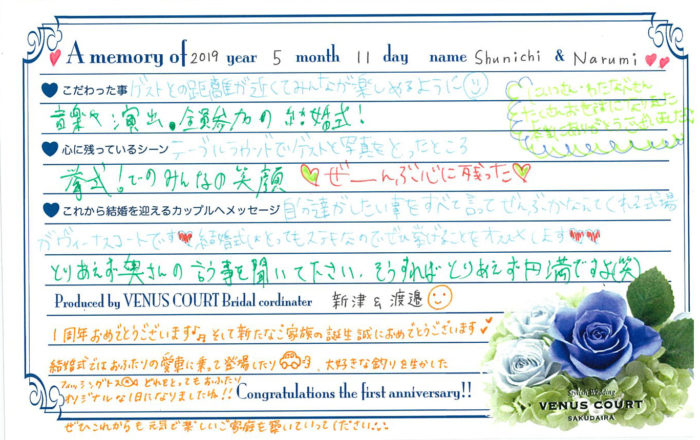 A memory of 2019 year 5 month 11 day name Shunichi & Narumi
こだわった事 ゲストとの距離が近くてみんなが楽しめるように
音楽や演出。全員参加の結婚式!
にいつさん・わたなべさん
たくさんお世話になりました
本当にありがとうございました
心に残っているシーン テーブルラウンドでゲストと写真をとったところ
挙式!でのみんなの笑顔 ぜーんぶ心に残った
これから結婚を迎えるカップルへメッセージ 自分達がしたい事をすべて言ってぜんぶかなえてくれる式場
がヴィーナスコートです 結婚式はとってもステキなのでぜひ挙げることをオススメします
とりあえず奥さんの言う事を聞いて下さい、そうすればとりあえず円満ですよ(笑)
Produced by VENUS COURT Bridal cordinater 新津 & 渡邉
1周年おめでとうございます♪ そして新たなご家族の誕生誠におめでとうございます
結婚式ではおふたりの愛車に乗って登場したり 大好きな釣りを生かした
フィッシングトス どれをとってもおふたり
オリジナルな1日になりましたね!! Congratulations the first anniversary!!
ぜひこれからも元気で楽しいご家庭を築いていってください
Special Wedding
VENUS COURT
SAKUDAIRA